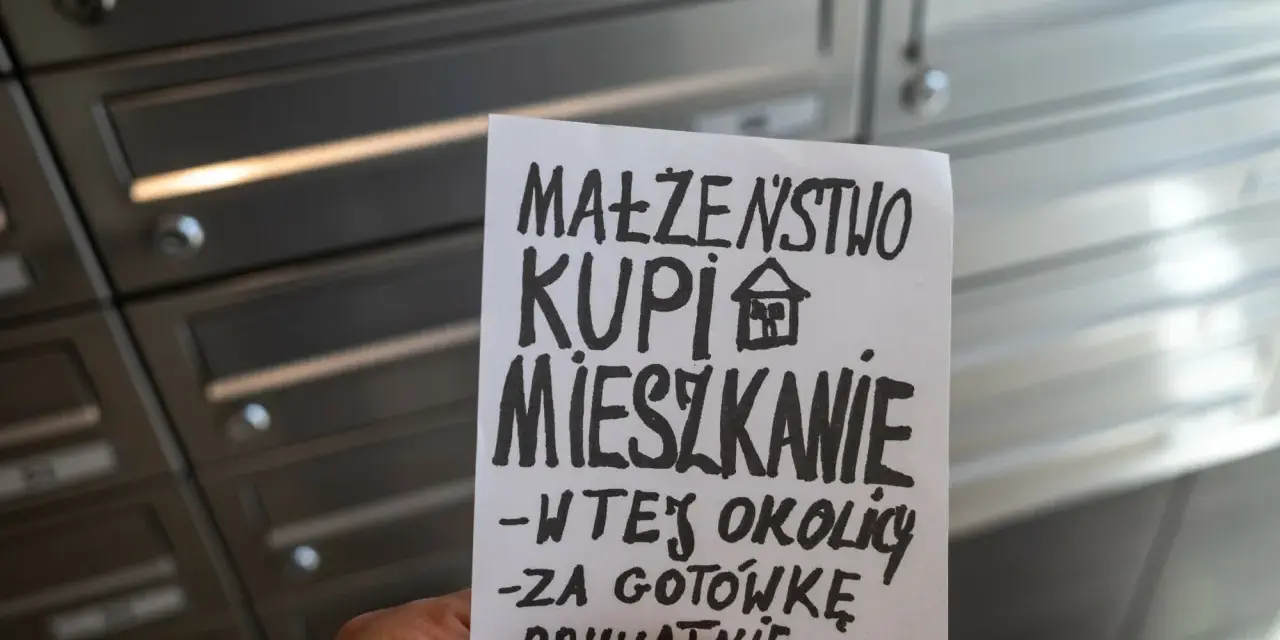 MAŁŻEŃSTWO
KUPi
MiESZKANiE
-W TEJ OKOLiCY
-ZA GOTÓWKĘ
PRYWATNIE